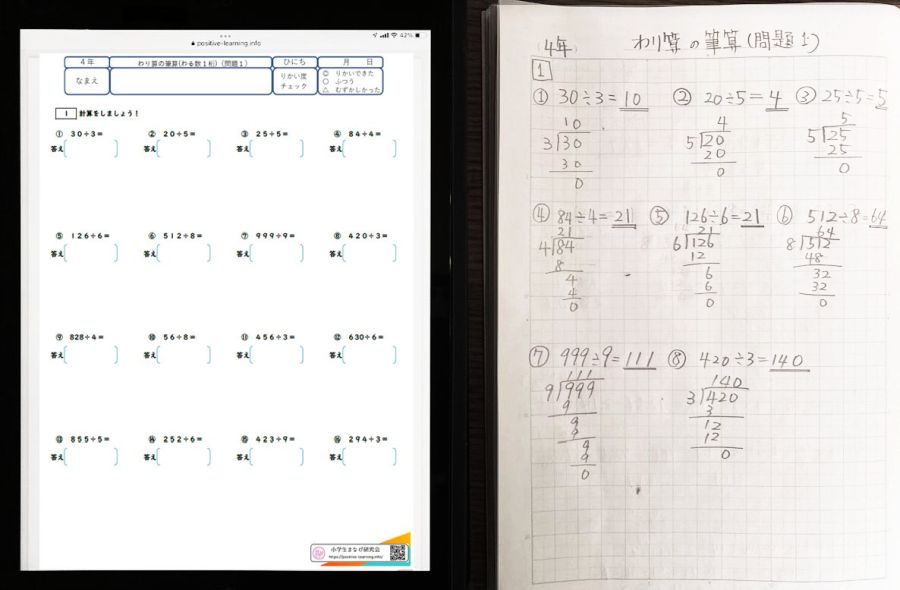 42%
positive-learning.info
4年 わり算の筆算(わる数1桁)(問題1) ひにち 月 日
なまえ
りかい度
チェック
◎ りかいできた
○ ふつう
△ むずかしかった
1 計算をしましょう！
① 30÷3= ② 20÷5= ③ 25÷5= ④ 84÷4=
答え 答え 答え 答え
⑤ 126÷6= ⑥ 512÷8= ⑦ 999÷9= ⑧ 420÷3=
答え 答え 答え 答え
⑨ 828÷4= ⑩ 56÷8= ⑪ 456÷3= ⑫ 630÷6=
答え 答え 答え 答え
⑬ 855÷5= ⑭ 252÷6= ⑮ 423÷9= ⑯ 294÷3=
答え 答え 答え 答え
小学生まなび研究会
https://positive-learning.info/
(4年) わり算の筆算(問題1)
1
① 30÷3=10 ② 20÷5=4 ③ 25÷5=5
10 4 5
3)30 5)20 5)25
30 20 25
0 0 0
④ 84÷4=21 ⑤ 126÷6=21 ⑥ 512÷8=64
21 21 64
4)84 6)126 8)512
8 12 48
4 6 32
4 6 32
0 0 0
⑦ 999÷9=111 ⑧ 420÷3=140
111 140
9)999 3)420
9 3
9 12
9 12
9 0
9
0